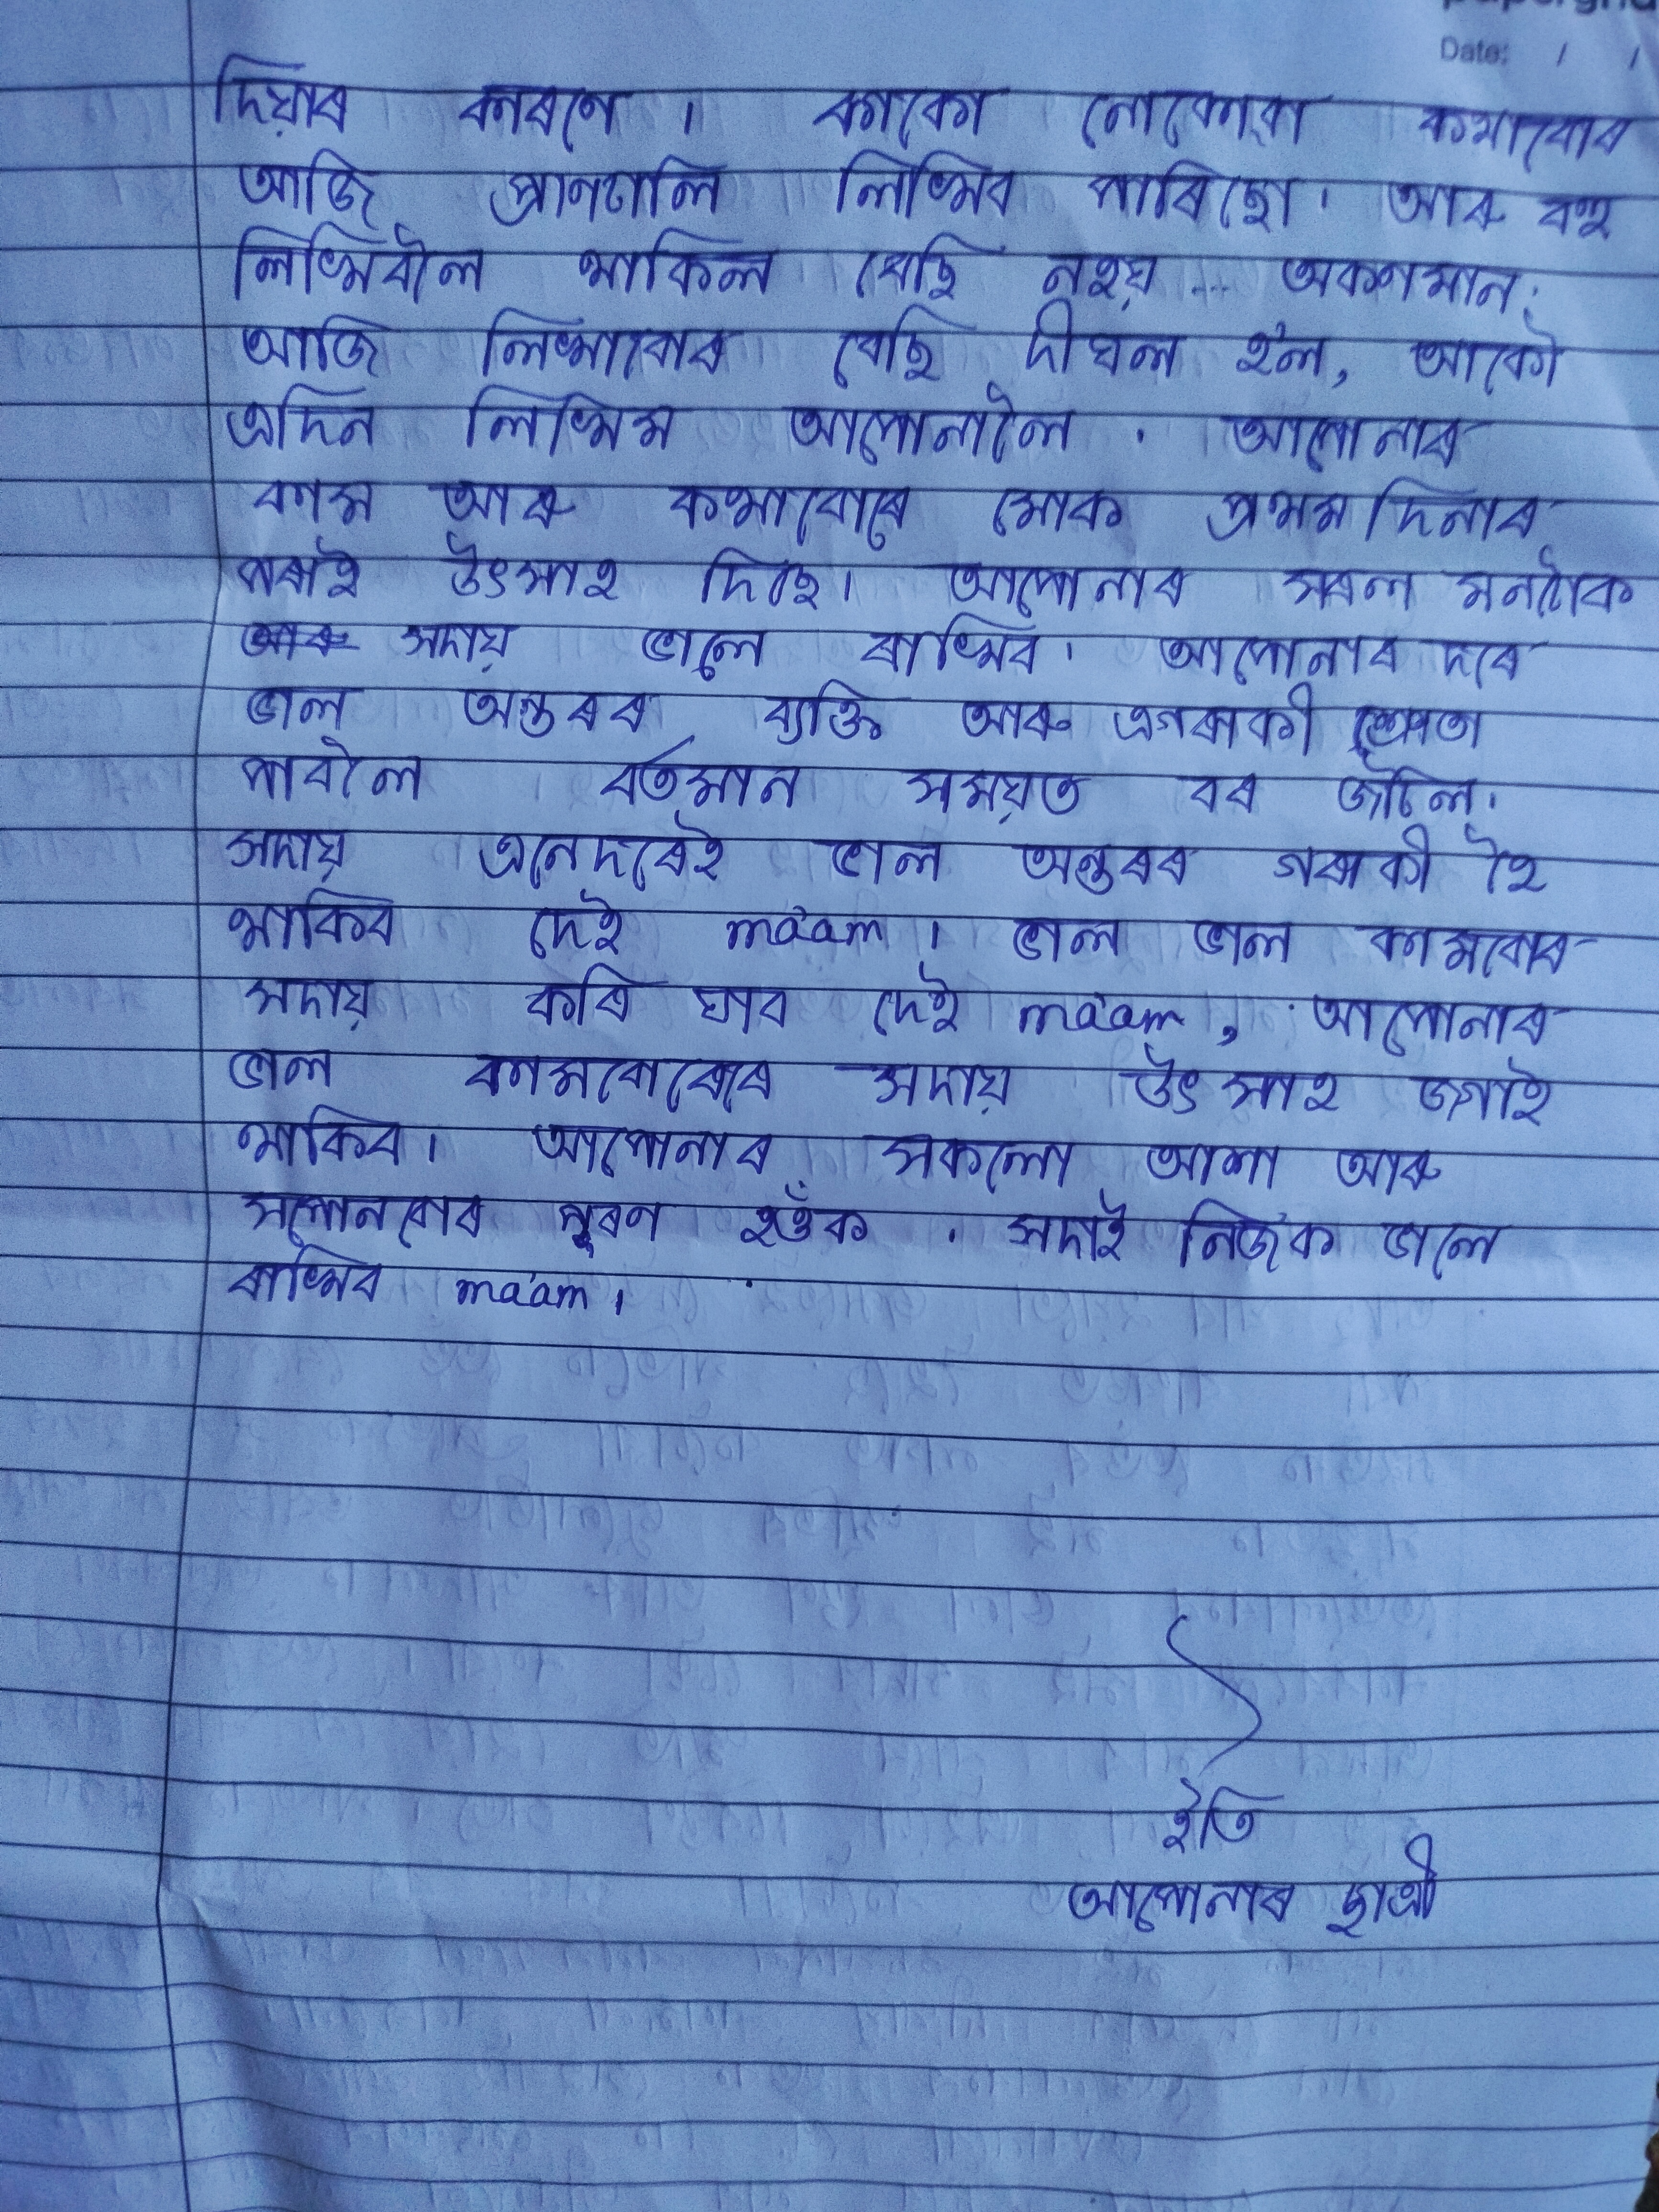 Date: / /
দিয়াৰ কাৰণে। কাকো নোকোৱা কথাবোৰ
আজি প্ৰাণঢালি লিখিব পাৰিছো। আৰু বহু
লিখিবলৈ থাকিল বেছি নহয় ... অকণমান।
আজি লিখাবোৰ বেছি দীঘল হ'ল, আকৌ
এদিন লিখিম আপোনালৈ। আপোনাৰ
কাম আৰু কথাবোৰে মোক প্ৰথমদিনাৰ
পৰাই উৎসাহ দিছে। আপোনাৰ সৰল মনটোক
আৰু সদায় ভালে ৰাখিব। আপোনাৰ দৰে
ভাল অন্তৰৰ ব্যক্তি আৰু এগৰাকী
পাবলৈ বৰ্তমান সময়ত বৰ জটিল।
সদায় এনেদৰেই ভাল অন্তৰৰ গৰাকী হৈ
থাকিব দেই ma'am। ভাল ভাল কামবোৰ
সদায় কৰি যাব দেই ma'am, আপোনাৰ
ভাল কামবোৰেৰে সদায় উৎসাহ জগাই
থাকিব। আপোনাৰ সকলো আশা আৰু
সপোনবোৰ পূৰণ হওঁক। সদাই নিজক ভালে
ৰাখিব ma'am।
ইতি
আপোনাৰ ছাত্ৰী